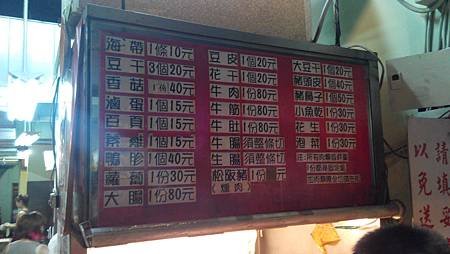 海帶 1條10元
豆干 3個20元
香菇 1份40元
滷蛋 1個15元
百頁 1個15元
素雞 1個15元
鴨胗 1個40元
蘿蔔 1份30元
大腸 1份80元
豆皮 1個20元
花干 1個20元
牛肉 1份80元
牛筋 1份80元
牛肚 1份80元
牛腱 須整條切
生腸 須整條切
松阪豬 1份 元
(燻肉)
大豆干 1個20元
豬頭皮 1份40元
豬鼻子 1份50元
小魚乾 1份30元
花生 1份30元
泡菜 1份30元
請填妥
以免送